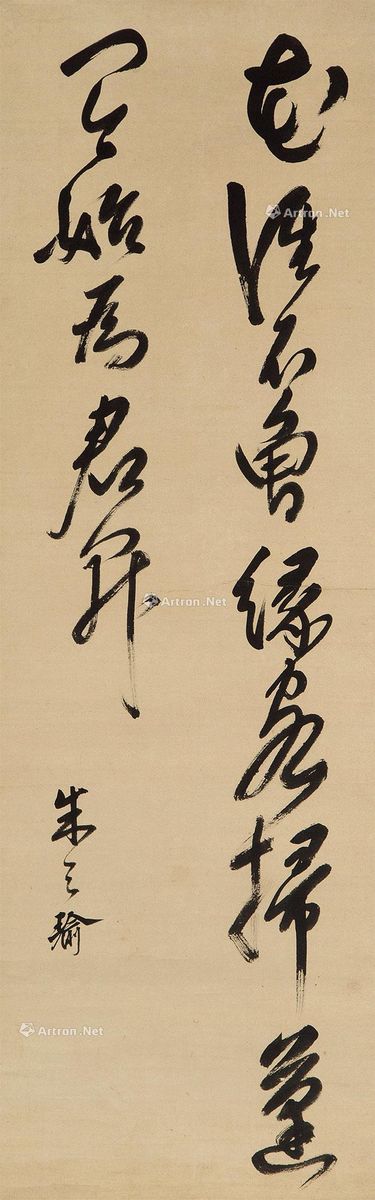 花徑不曾緣客掃蓬
門今始為君開
朱之瑜
Artron.Net
Artron.Net
Artron.Net